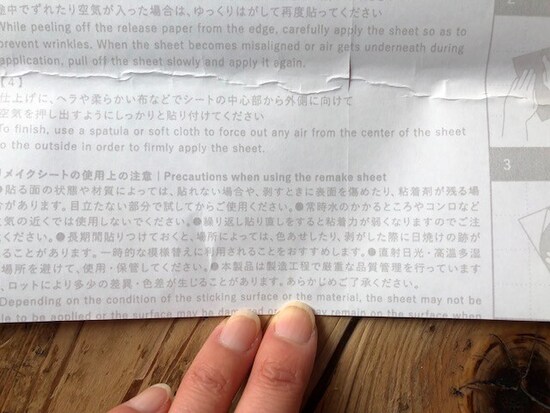 途中でずれたり空気が入った場合は、ゆっくりはがして再度貼ってください
While peeling off the release paper from the edge, carefully apply the sheet so as to
prevent wrinkles. When the sheet becomes misaligned or air gets underneath during
application, pull off the sheet slowly and apply it again.
【4】
仕上げに、ヘラや柔らかい布などでシートの中心部から外側に向けて
空気を押し出すようにしっかりと貼り付けてください
To finish, use a spatula or soft cloth to force out any air from the center of the sheet
to the outside in order to firmly apply the sheet.
リメイクシートの使用上の注意 | Precautions when using the remake sheet
●貼る面の状態や材質によっては、貼れない場合や、剥すときに表面を傷めたり、粘着剤が残る場
合があります。目立たない部分で試してからご使用ください。●常時水のかかるところやコンロなど
火気の近くでは使用しないでください。●繰り返し貼り直しをすると粘着力が弱くなりますのでご注
ください。●長期間貼りつけておくと、場所によっては、色あせしたり、剥がした際に日焼けの跡が
ることがあります。一時的な模様替えに利用されることをおすすめします。●直射日光・高温多湿
場所を避けて、使用・保管してください。●本製品は製造工程で厳重な品質管理を行っています
、ロットにより多少の差異・色差が生じることがあります。あらかじめご了承ください。
Depending on the condition of the sticking surface or the material, the sheet may not be
to be applied or the surface may be or may remain on the surface when
3